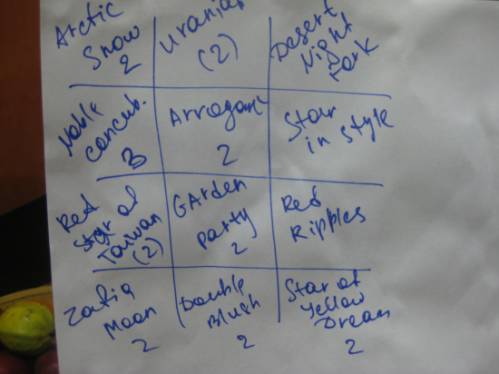 Arctic
Snow
2
Uranias
(2)
Desert
Night
Park
Noble
Concub.
3
Arrogant
2
Star
in Style
Red
Star of
Taiwan
(2)
GArden
Party
2
Red
Ripples
Zafia
Moon
2
Double
Blush
2
Star of
Yellow
Dream
2